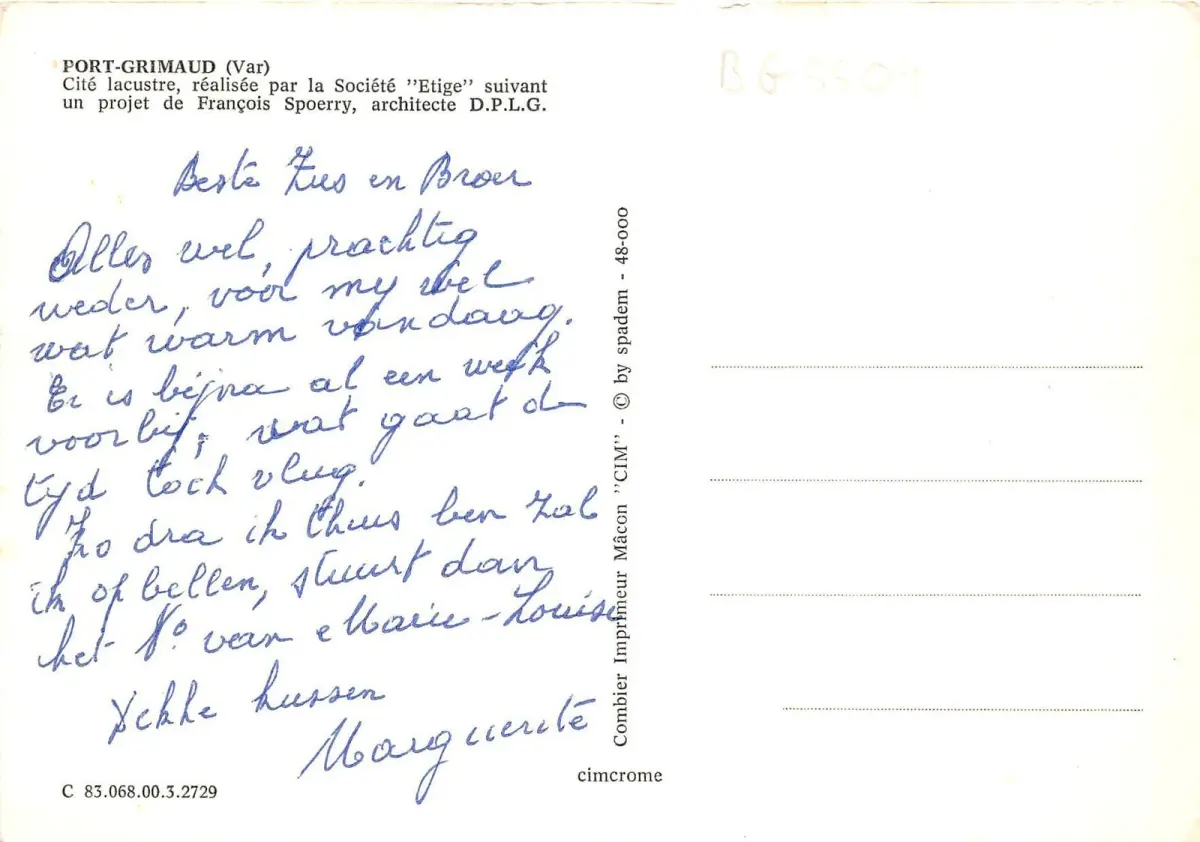 BG 5504
PORT-GRIMAUD (Var)
Cité lacustre, réalisée par la Société "Etige" suivant
un projet de François Spoerry, architecte D.P.L.G.
Beste Zus en Broer
Alles wel, prachtig
weder, voor my wel
wat warm vandaag.
Er is bijna al een week
voorbij, wat gaat de
tyd toch vlug.
Zo dra ik thuis ben zal
ik op bellen, stuurt dan
het No van Marie-Louise
Dikke kussen
Marguerite
C 83.068.00.3.2729
cimcrome
Combier Imprimeur Mâcon "CIM" - © by spadem - 48-000